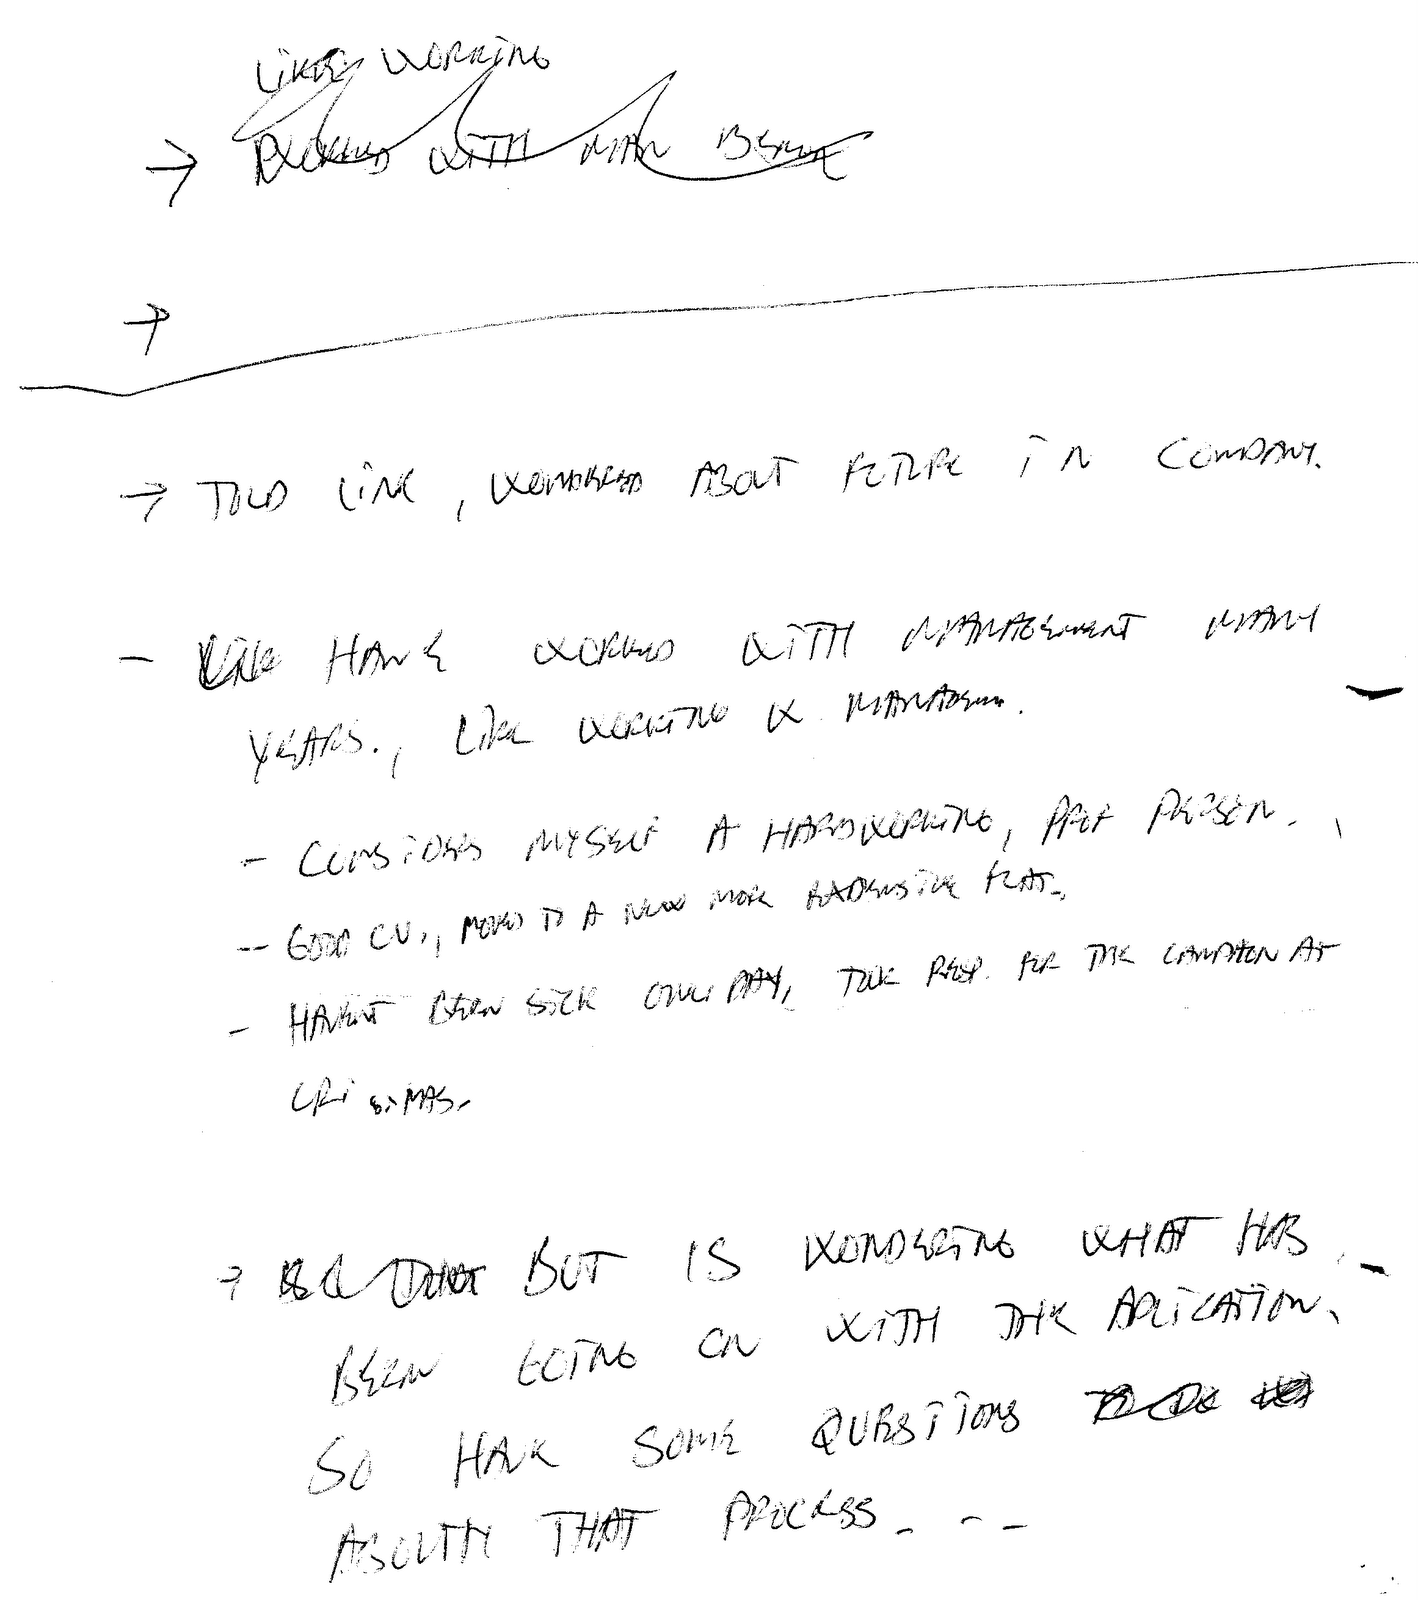 LIKE WORKING
→ WORKED WITH MAN
→
→ TOLD LINE, WONDERED ABOUT FUTURE IN COMPANY.
- HAVE WORKED WITH MANAGEMENT MANY
YEARS., LIKE WORKING W. MANAGEM.
- CONSIDERS MYSELF A HARDWORKING, PROF PERSON.
- GOOD CV., MOVED TO A NEW MORE EXPENSIVE FLAT.
- HAVENT BEEN SICK ONE DAY, TOOK RESP. FOR THE CAMPAIGN AT
CRISTMAS.
→ BUT IS WONDERING WHAT HAS
BEEN GOING ON WITH THE APLICATION.
SO HAVE SOME QUESTIONS
ABOUTH THAT PROCESS - - -